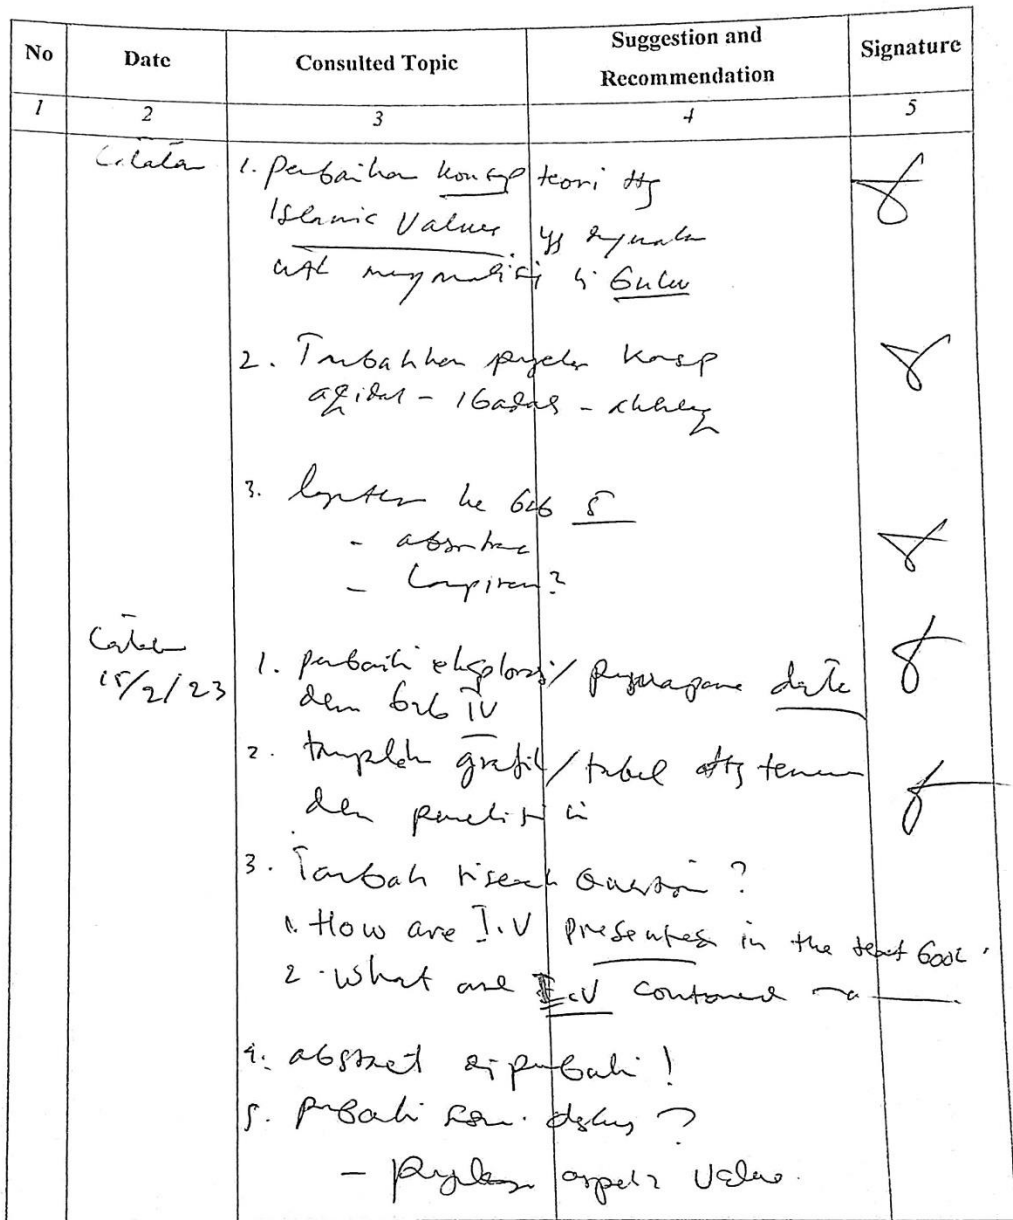 No Date Consulted Topic Suggestion and Recommendation Signature
1 2 3 4 5
Catatan
1. Perbaikan konsep teori ttg
Islamic Values yg digunakan
utk menganalisis di buku
2. Tambahkan penjelasan konsep
aqidah - ibadah - akhlaq
3. lanjutkan ke bab 5
- abstrac
- Lampiran?
Catatan
15/2/23
1. perbaiki eksplorasi/ data
dlm bab IV
2. tampilkan grafik/tabel ttg temuan
dlm penelitian
3. Tambah riseach Question?
1. How are I.V presented in the text book
2. What are I.V contained
4. abstract diperbaiki!
5. perbaiki
- aspek2 value.